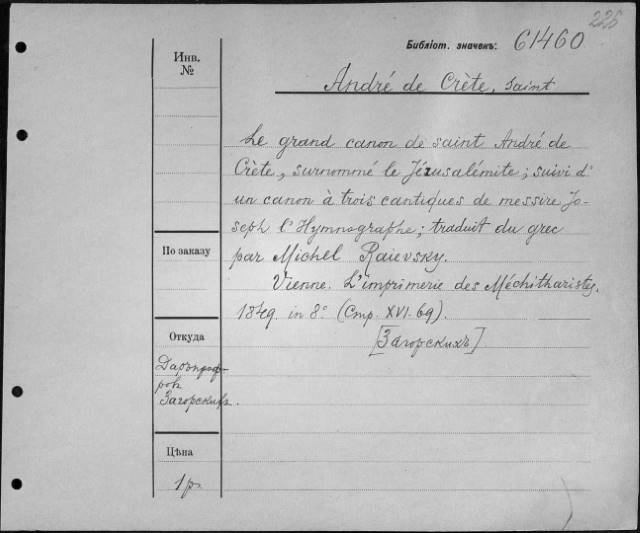 226
Библіот. значекъ: 61460
Инв.
№
André de Crète, Saint
Le grand canon de saint André de
Crète, surnommé le Jérusalémite; suivi d'
un canon à trois cantiques de messire Jo-
seph l'Hymnographe; traduit du grec
По заказу
par Michel Raievsky.
Vienne. L'imprimerie des Méchitharisty.
1849. in 8° (Стр. XVI. 69).
Откуда
[Загорскихъ]
Загорскихъ.
Цѣна
1 р.